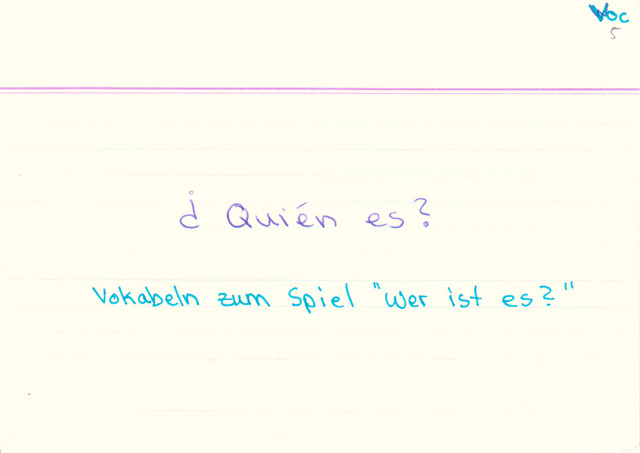 Voc
5
¿Quién es?
Vokabeln zum Spiel "Wer ist es?"